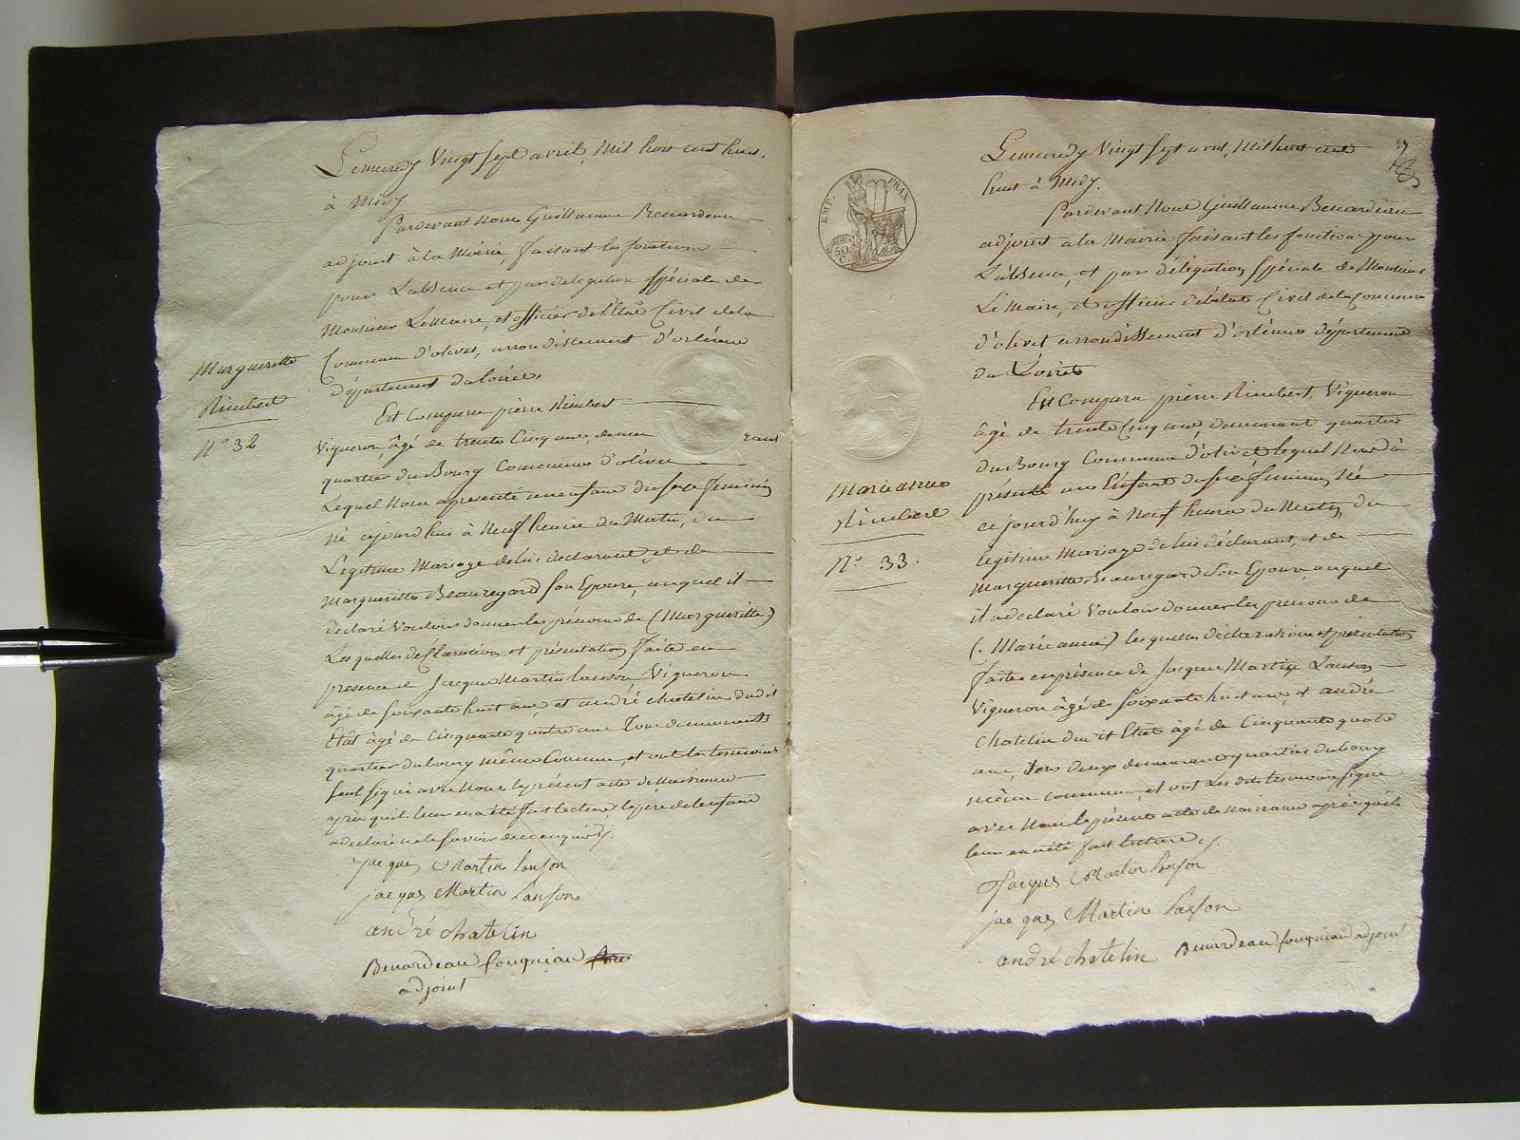 Lemercredy Vingt Sept avril, Mil huit cent huit,
à Midy
Pardevant Nous Guillaume Benardeau
adjoint à la Mairie, faisant les fonctions
pour L'absence et par délégation Spéciale de
Monsieur Lemaire, et officier de l'état Civil de la
Commune d'olivet, arrondissement d'orléans
département du loiret,
Marguerite
Rimbert
N° 32
Est Comparu pierre Rimbert
Vigneron, âgé de trente Cinq ans demeurant
quartier du Bourg Commune d'olivet
Lequel Nous a présenté un enfant du sexe feminin
né cejourd'hui à Neuf heures du Matin, du
Légitime Mariage de lui déclarant, et de
Margueritte Beauregard Son Epouse, auquel il
déclaré Vouloir donner les prénoms de (Margueritte)
Les quelles déclaration et présentation faite en
presence de Jacque Martin Lanson, Vigneron
âgé de soixante huit ans, et andré chatelin dudit
Etat âgé de Cinquante quatre ans Tous deux demeurants
quartier du bourg même Commune, et ont les temoins
seul signé avec Nous le présent acte de Naissance
après qu'il leur en a été fait lecture, le pere de lenfant
a déclaré ne le savoir de ce enquis
jacques Martin Lanson
jacques Martin Lanson
andré chatelin
Benardeau fouqueau
adjoint
EMP. FRAN.
Lemercredy Vingt Sept avril, Mil huit cent
huit à Midy.
Pardevant Nous Guillaume Benardeau
adjoint à la Mairie faisant les fonctions pour
L'absence, et par délégation Spéciale de Monsieur
Le Maire, et officier de l'état Civil de la Commune
d'olivet arrondissement d'orléans département
du Loiret
Est Comparu pierre Rimbert, Vigneron
âgé de trente Cinq ans, demeurant quartier
du Bourg Commune d'olivet lequel Nous a
Marie anne
Rimbert
N° 33.
présenté un Enfant du sexe feminin, Né
cejourd'huy à Neuf heures du Matin, du
legitime Mariage de lui déclarant, et de
Margueritte Beauregard Son Epouse, auquel
il a déclaré Vouloir donner les prenoms de
(Marie anne) les quelles déclaration et présentation
faite en présence de Jacque Martin Lanson
Vigneron âgé de soixante huit ans, et andré
Chatelin dudit Etat âgé de Cinquante quatre
ans, Tous deux demeurant quartier du bourg
même commune, et ont Les dits temoins signé
avec Nous le présent acte de Naissance après qu'il
leur en a été fait lecture
Jacques Martin Lanson
jacques Martin Lanson
andré chatelin Benardeau fouqueau adjoint